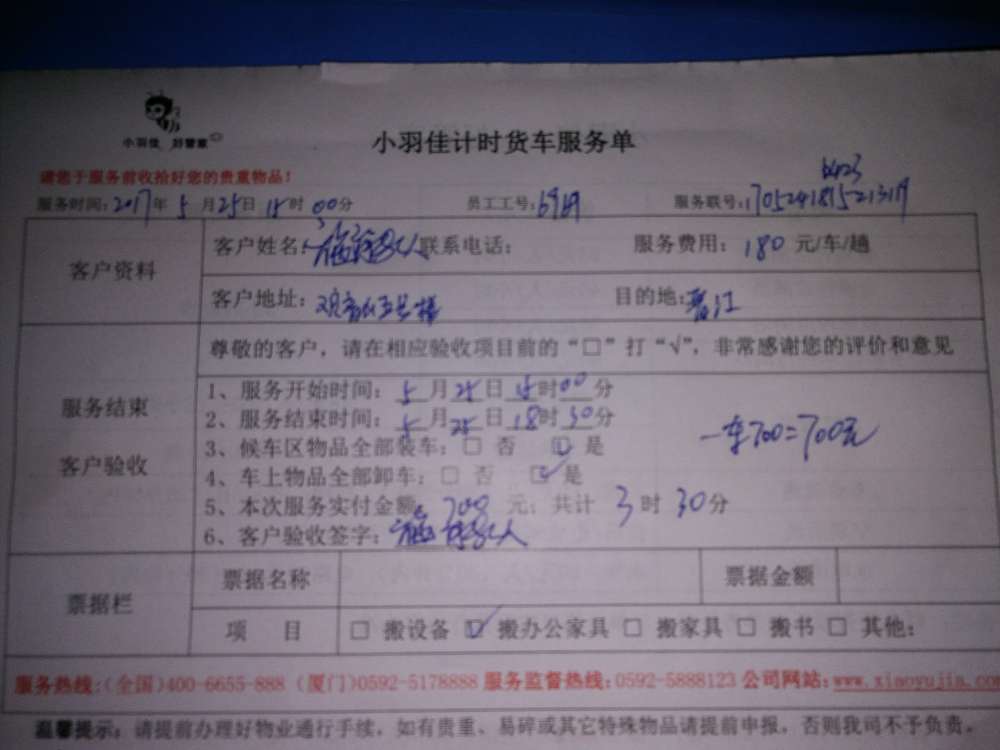 小羽佳 好管家
小羽佳计时货车服务单
请您于服务前收拾好您的贵重物品！
6423
服务时间：2017年5月25日15时00分 员工工号：6969 服务联号：1705241815213119
客户资料
客户姓名： 联系电话： 服务费用：180元/车/趟
客户地址： 目的地：晋江
服务结束
客户验收
尊敬的客户，请在相应验收项目前的“□”打“√”，非常感谢您的评价和意见
1、服务开始时间：5月25日15时00分
2、服务结束时间：5月25日18时30分
3、候车区物品全部装车：□ 否 ☑ 是
4、车上物品全部卸车：□ 否 ☑ 是
5、本次服务实付金额：700元；共计3时30分
6、客户验收签字：
一车700=700元
票据栏
票据名称 票据金额
项 目 □ 搬设备 ☑ 搬办公家具 □ 搬家具 □ 搬书 □ 其他：
服务热线：(全国)400-6655-888 (厦门)0592-5178888 服务监督热线：0592-5888123 公司网站：www.xiaoyujia.com
温馨提示：请提前办理好物业通行手续，如有贵重、易碎或其它特殊物品请提前申报，否则我司不予负责。